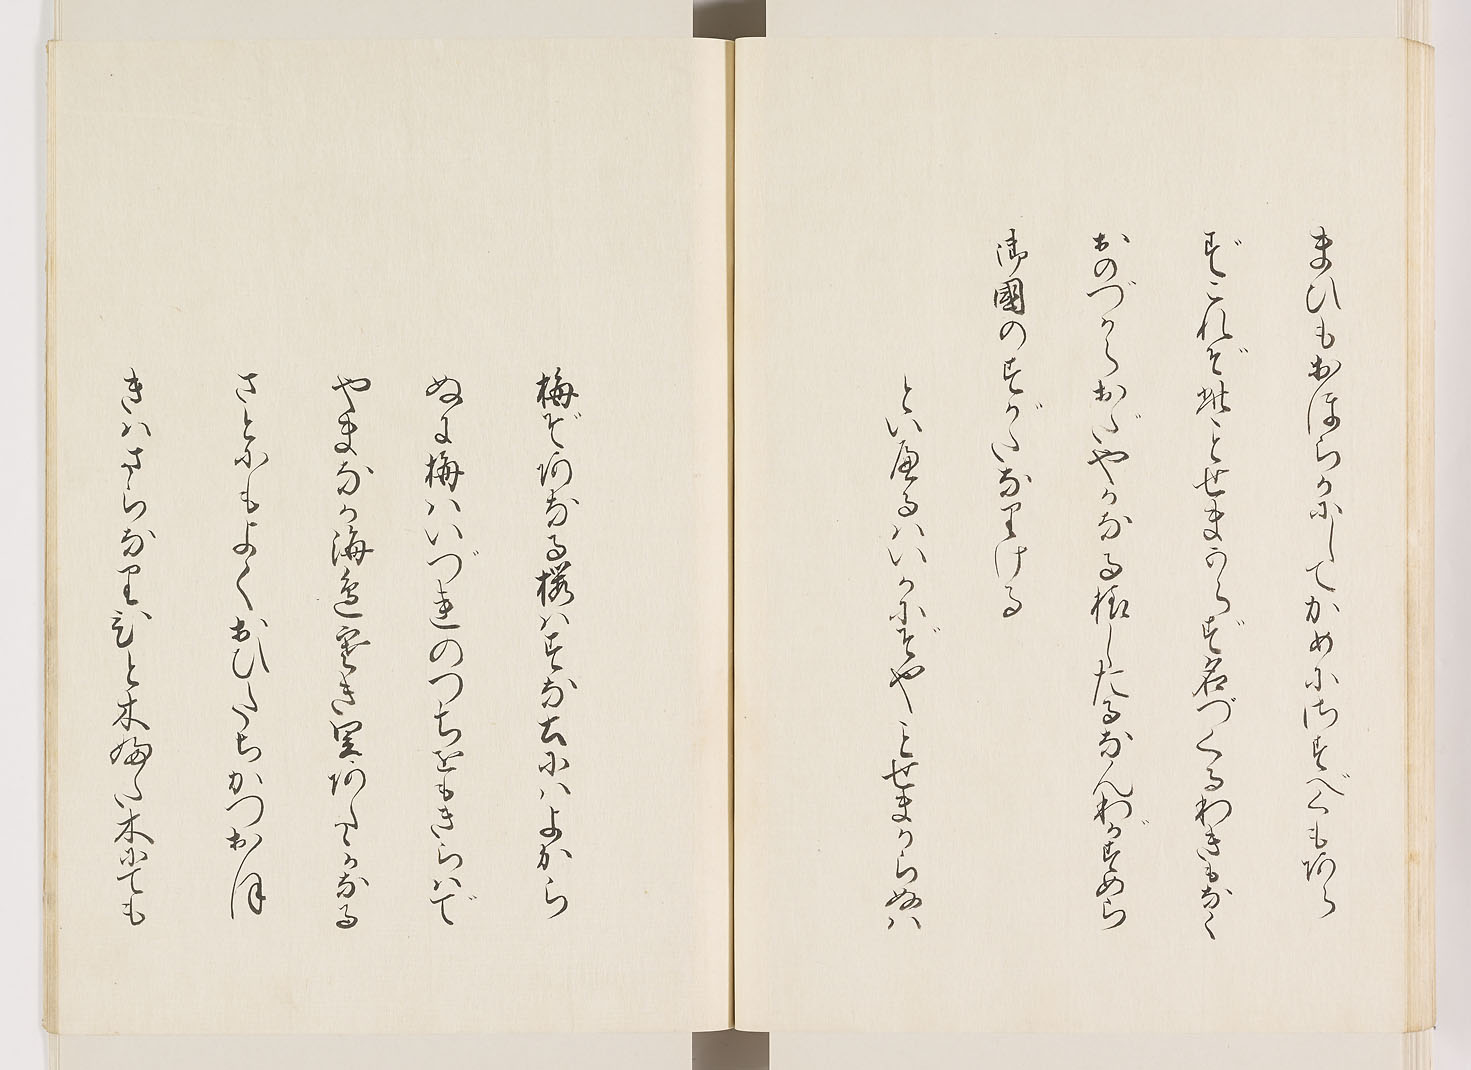 まひもおほらかにしてかめにさすべくもあら
ずこれぞ此ことせまからず名づくるわきもなく
おのづからおだやかなる樹したるなんわがすめら
御國のすがたなりける
といへるはいかにぞやことせまからぬは
梅ぞあなる櫻はすな去にはよから
ぬに梅はいづれのつちをもきらはで
やまなか海邊寒き里あたゝかなる
さとにもよくおひたちかつおほ
きはさらなりひと木ふた木にても